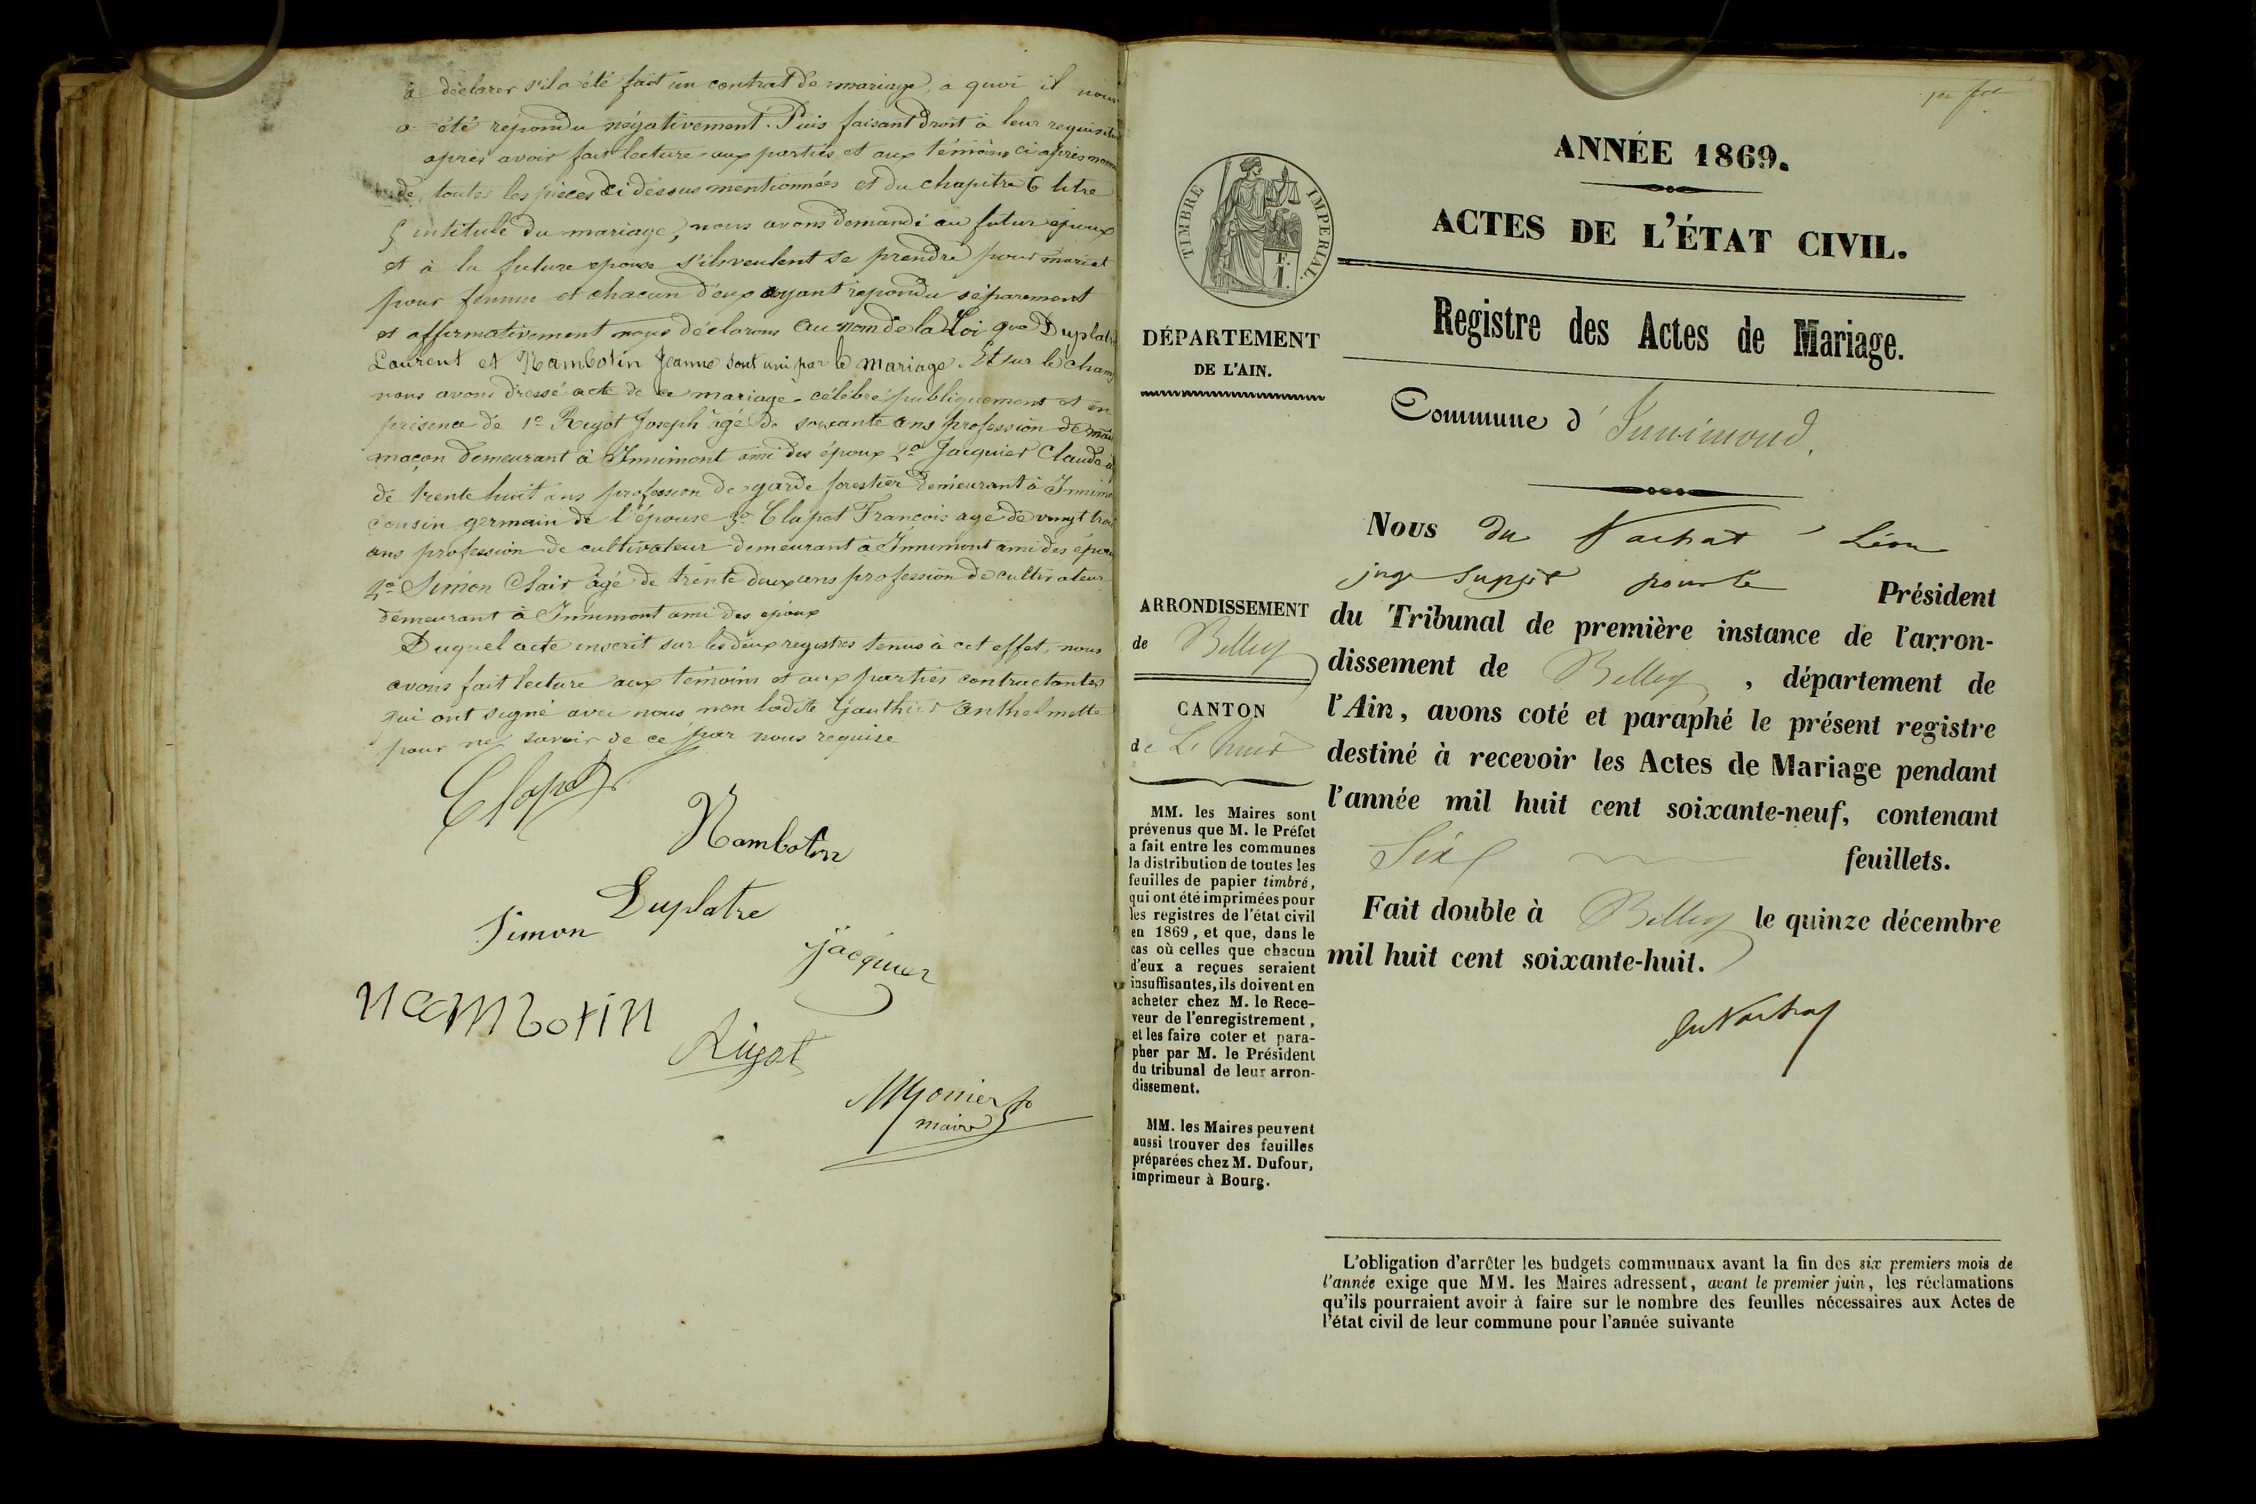 à déclarer s'il a été fait un contrat de mariage, a quoi il nous
a été répondu négativement. Puis faisant droit à leur requisition
après avoir fait lecture aux parties et aux témoins ci après nommés
de toutes les pièces ci dessus mentionnées et du chapitre 6 titre
5 intitulé du mariage, nous avons demandé au futur époux
et à la future epouse s'ils veulent se prendre pour mari et
pour femme et chacun d'eux ayant repondu séparement
et affirmativement nous déclarons au nom de la Loi que Duplatre
Laurent et Nambotin Jeanne sont uni par le mariage. Et sur le champ
nous avons dressé acte de ce mariage célébré publiquement et en
présence de 1º Rigot Joseph âgé de soixante ans profession de
maçon demeurant à Innimont ami des époux 2º Jacquier Claude
de trente huit ans profession de garde forestier demeurant à Innimont
cousin germain de l'épouse 3º Clapot François agé de vingt trois
ans profession de cultivateur demeurant à Innimont ami des époux
4º Simon Clair âgé de trente deux ans profession de cultivateur
demeurant à Innimont ami des époux
Duquel acte inscrit sur les deux registres tenus à cet effet, nous
avons fait lecture aux témoins et aux parties contractantes
qui ont signé avec nous non ladite Gauthier Anthelmette
pour ne savoir de ce par nous requise
Clapot
Nambotin
Duplatre
Simon
jacquier
nambotin
Rigot
Mgonier
maire
ANNÉE 1869.
ACTES DE L'ÉTAT CIVIL.
TIMBRE IMPERIAL.
Registre des Actes de Mariage.
DÉPARTEMENT
DE L'AIN.
Commune d' Innimond.
Nous du Vachat Léon
juge suppt pour le Président
du Tribunal de première instance de l'arron-
dissement de Belley, département de
l'Ain, avons coté et paraphé le présent registre
destiné à recevoir les Actes de Mariage pendant
l'année mil huit cent soixante-neuf, contenant
Six feuillets.
Fait double à Belley le quinze décembre
mil huit cent soixante-huit.
du Vachat
ARRONDISSEMENT
de Belley
CANTON
de L'huis
MM. les Maires sont
prévenus que M. le Préfet
a fait entre les communes
la distribution de toutes les
feuilles de papier timbré,
qui ont été imprimées pour
les registres de l'état civil
en 1869, et que, dans le
cas où celles que chacun
d'eux a reçues seraient
insuffisantes, ils doivent en
acheter chez M. le Rece-
veur de l'enregistrement,
et les faire coter et para-
pher par M. le Président
du tribunal de leur arron-
dissement.
MM. les Maires peuvent
aussi trouver des feuilles
préparées chez M. Dufour,
imprimeur à Bourg.
L'obligation d'arrêter les budgets communaux avant la fin des six premiers mois de
l'année exige que MM. les Maires adressent, avant le premier juin, les réclamations
qu'ils pourraient avoir à faire sur le nombre des feuilles nécessaires aux Actes de
l'état civil de leur commune pour l'année suivante